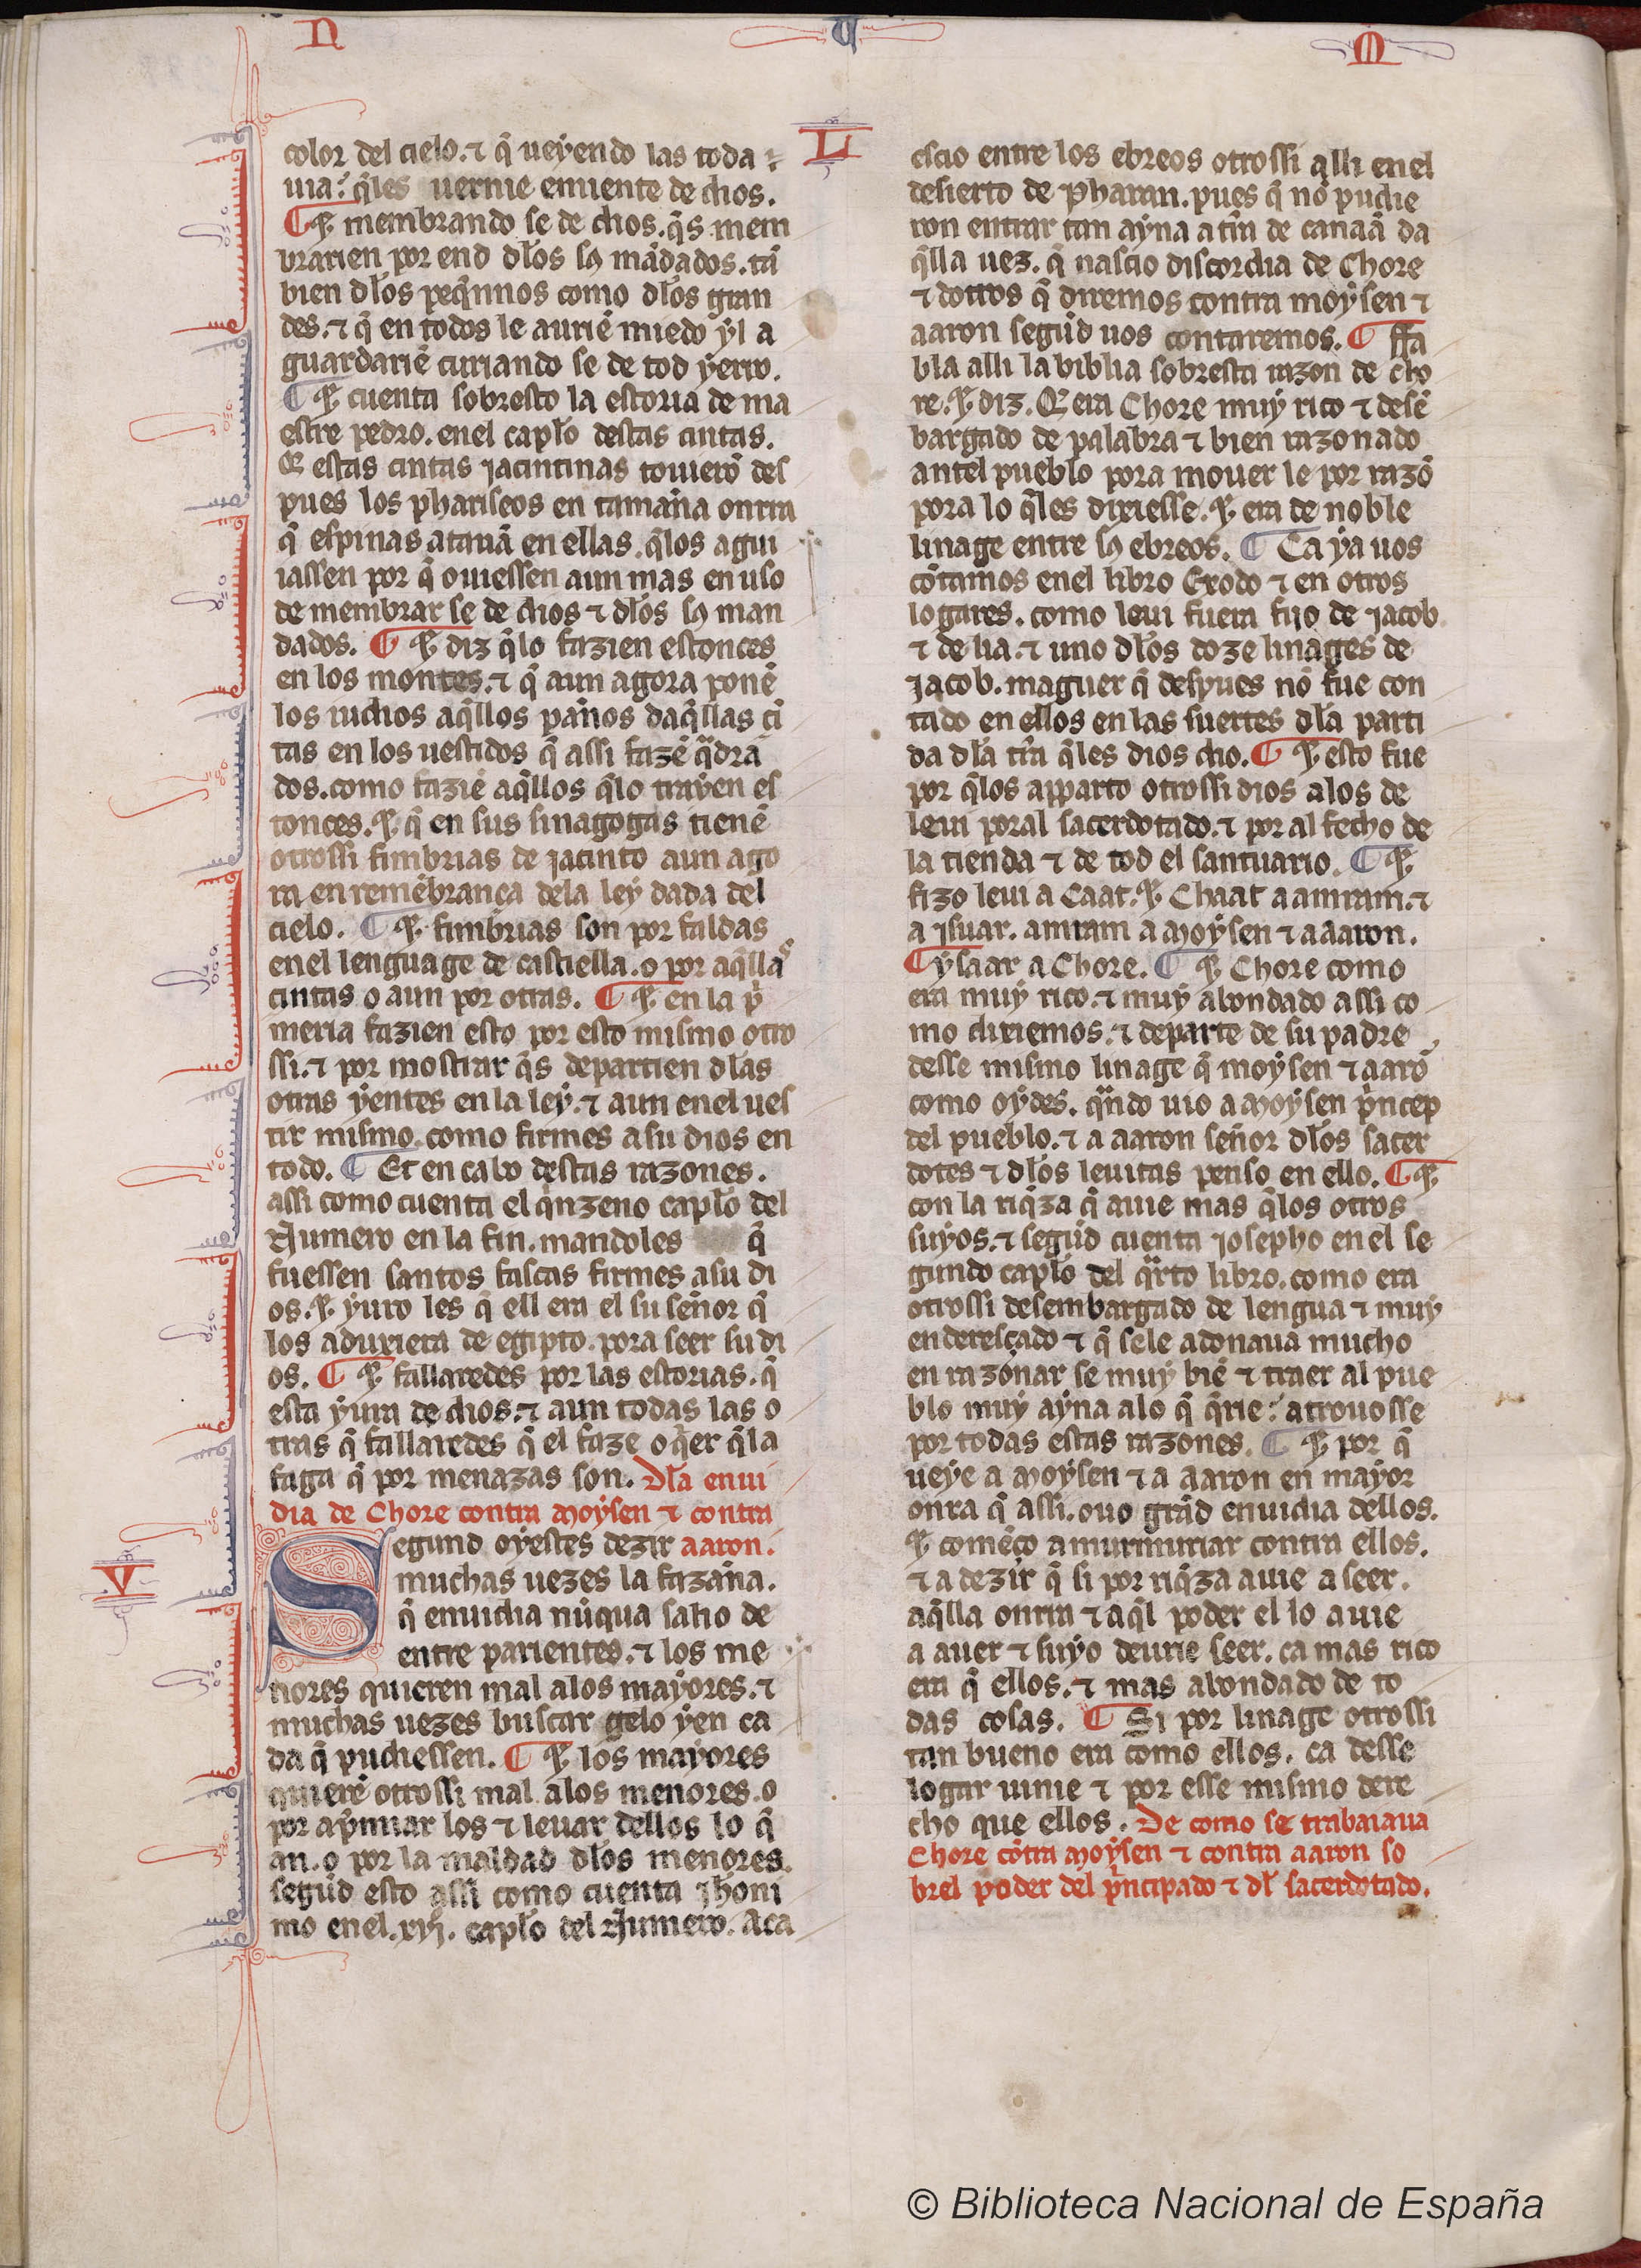 N U M
color del cielo. ⁊ q̃ ueyendo las toda
uia? q̃les uernie enmiente de dios.
¶ E membrando se de dios. q̃s mem
brarien por end dl̃os sꝯ mãdados. tã
bien dl̃os peq̃nnos como dl̃os gran
des. ⁊ q̃ en todos le auriẽ miedo yl a
guardariẽ curiando se de tod yerro.
¶ E cuenta sobresto la estoria de ma
estre pedro. enel capl̃o destas cintas.
Q̃ estas cintas jacintinas touierõ des
pues los phariseos en tamaña onrra
q̃ espinas atauã en ellas. q̃los agui
iassen por q̃ ouiessen aun mas en uso
de membrar se de dios ⁊ dl̃os sꝯ man
dados. ¶ E diz q̃lo fazien estonces
en los montes. ⁊ q̃ aun agora ponẽ
los iudios aq̃llos paños daq̃llas cĩ
tas en los uestidos q̃ assi fazẽ q̃dra
dos. como faziẽ aq̃llos q̃lo trayen es
tonces. E q̃ en sus sinagogas tienẽ
otrossi fimbrias de jacinto aun ago
ra en remẽbrança dela ley dada del
cielo. ¶ E fimbrias son por faldas
enel lenguage de castiella. o por aq̃llas
cintas o aun por otras. ¶ E en la p̃
meria fazien esto por esto mismo otro
ssi. ⁊ por mostrar q̃s departien dl̃as
otras yentes en la ley. ⁊ aun enel ues
tir mismo. como firmes a su dios en
todo. ¶ Et en cabo destas razones.
assi como cuenta el q̃nzeno capl̃o del
Numero en la fin. mandoles q̃
fuessen santos fascas firmes asu di
os. E yuro les q̃ ell era el su señor q̃
los aduxiera de egipto. pora seer su di
os. ¶ E fallaredes por las estorias. q̃
esta yura de dios. ⁊ aun todas las o
tras q̃ fallaredes q̃ el faze o q̃er q̃la
faga q̃ por menazas son. Dl̃a enui
dia de Chore contra Moysen ⁊ contra
V Segund oyestes dezir aaron.
muchas uezes la fazaña.
q̃ enuidia nũqua salio de
entre parientes. ⁊ los me
nores quieren mal alos mayores. ⁊
muchas uezes buscar gelo yen ca
da q̃ pudiessen. ¶ E los mayores
quierẽ otrossi mal alos menores. o
por ap̃miar los ⁊ leuar dellos lo q̃
an. o por la maldad dl̃os menores.
segũd esto assi como cuenta Jhoni
mo enel. xvj. capl̃o del Numero. Aca
L escio entre los ebreos otrossi alli enel
desierto de Pharan. pues q̃ no pudie
ron entrar tan ayna a tr̃a de canaã da
q̃lla uez. q̃ nascio discordia de Chore
⁊ dotros q̃ diremos contra moysen ⁊
aaron segũd uos contaremos. ¶ ffa
bla alli la biblia sobresta razon de cho
re. E diz. Q̃ era Chore muy rico ⁊ desẽ
bargado de palabra ⁊ bien razonado
antel pueblo pora mouer le por razõ
pora lo q̃les dixiesse. E era de noble
linage entre sꝯ ebreos. ¶ Ca ya uos
cõtamos enel libro Exodo ⁊ en otros
logares. como leui fuera fijo de jacob
⁊ de lia. ⁊ uno dl̃os doze linages de
Jacob. maguer q̃ despues nõ fue con
tado en ellos en las suertes dl̃a parti
da dl̃a tr̃a q̃les dios dio. ¶ E esto fue
por q̃los apparto otrossi dios alos de
leui poral sacerdotado. ⁊ por al fecho de
la tienda ⁊ de tod el santuario. ¶ E
fizo leui a Caat. E Chaat a amram. ⁊
a jsuar. amram a Moysen ⁊ a aaron.
¶ ysaar a Chore. ¶ E Chore como
era muy rico. ⁊ muy abondado assi co
mo dixiemos. ⁊ departe de su padre
desse mismo linage q̃ moysen ⁊ aarõ
como oydes. q̃ndo uio a Moysen p̃ncep
del pueblo. ⁊ a aaron señor dl̃os sacer
dotes ⁊ dl̃os leuitas penso en ello. ¶ E
con la riq̃za q̃ auie mas q̃los otros
suyos. ⁊ segũd cuenta josepho en el se
gundo capl̃o del q̃rto libro. como era
otrossi desembargado de lengua ⁊ muy
enderesçado ⁊ q̃ sele adonaua mucho
en razonar se muy biẽ ⁊ traer al pue
blo muy ayna alo q̃ q̃rie? atrouosse
por todas estas razones. ¶ E por q̃
ueye a Moysen ⁊ a aaron en mayor
onra q̃ assi. ouo grãd enuidia dellos.
E comẽço a murmuriar contra ellos.
⁊ a dezir q̃ si por riq̃za auie a seer.
aq̃lla onrra ⁊ aq̃l poder el lo auie
a auer ⁊ suyo deurie seer. ca mas rico
era q̃ ellos. ⁊ mas abondado de to
das cosas. ¶ Si por linage otrossi
tan bueno era como ellos. ca desse
logar uinie ⁊ por esse mismo dere
cho que ellos. De como se trabaiaua
Chore cõtra Moysen ⁊ contra aaron so
brel poder del p̃ncipado ⁊ dl̃ sacerdotado.
© Biblioteca Nacional de España